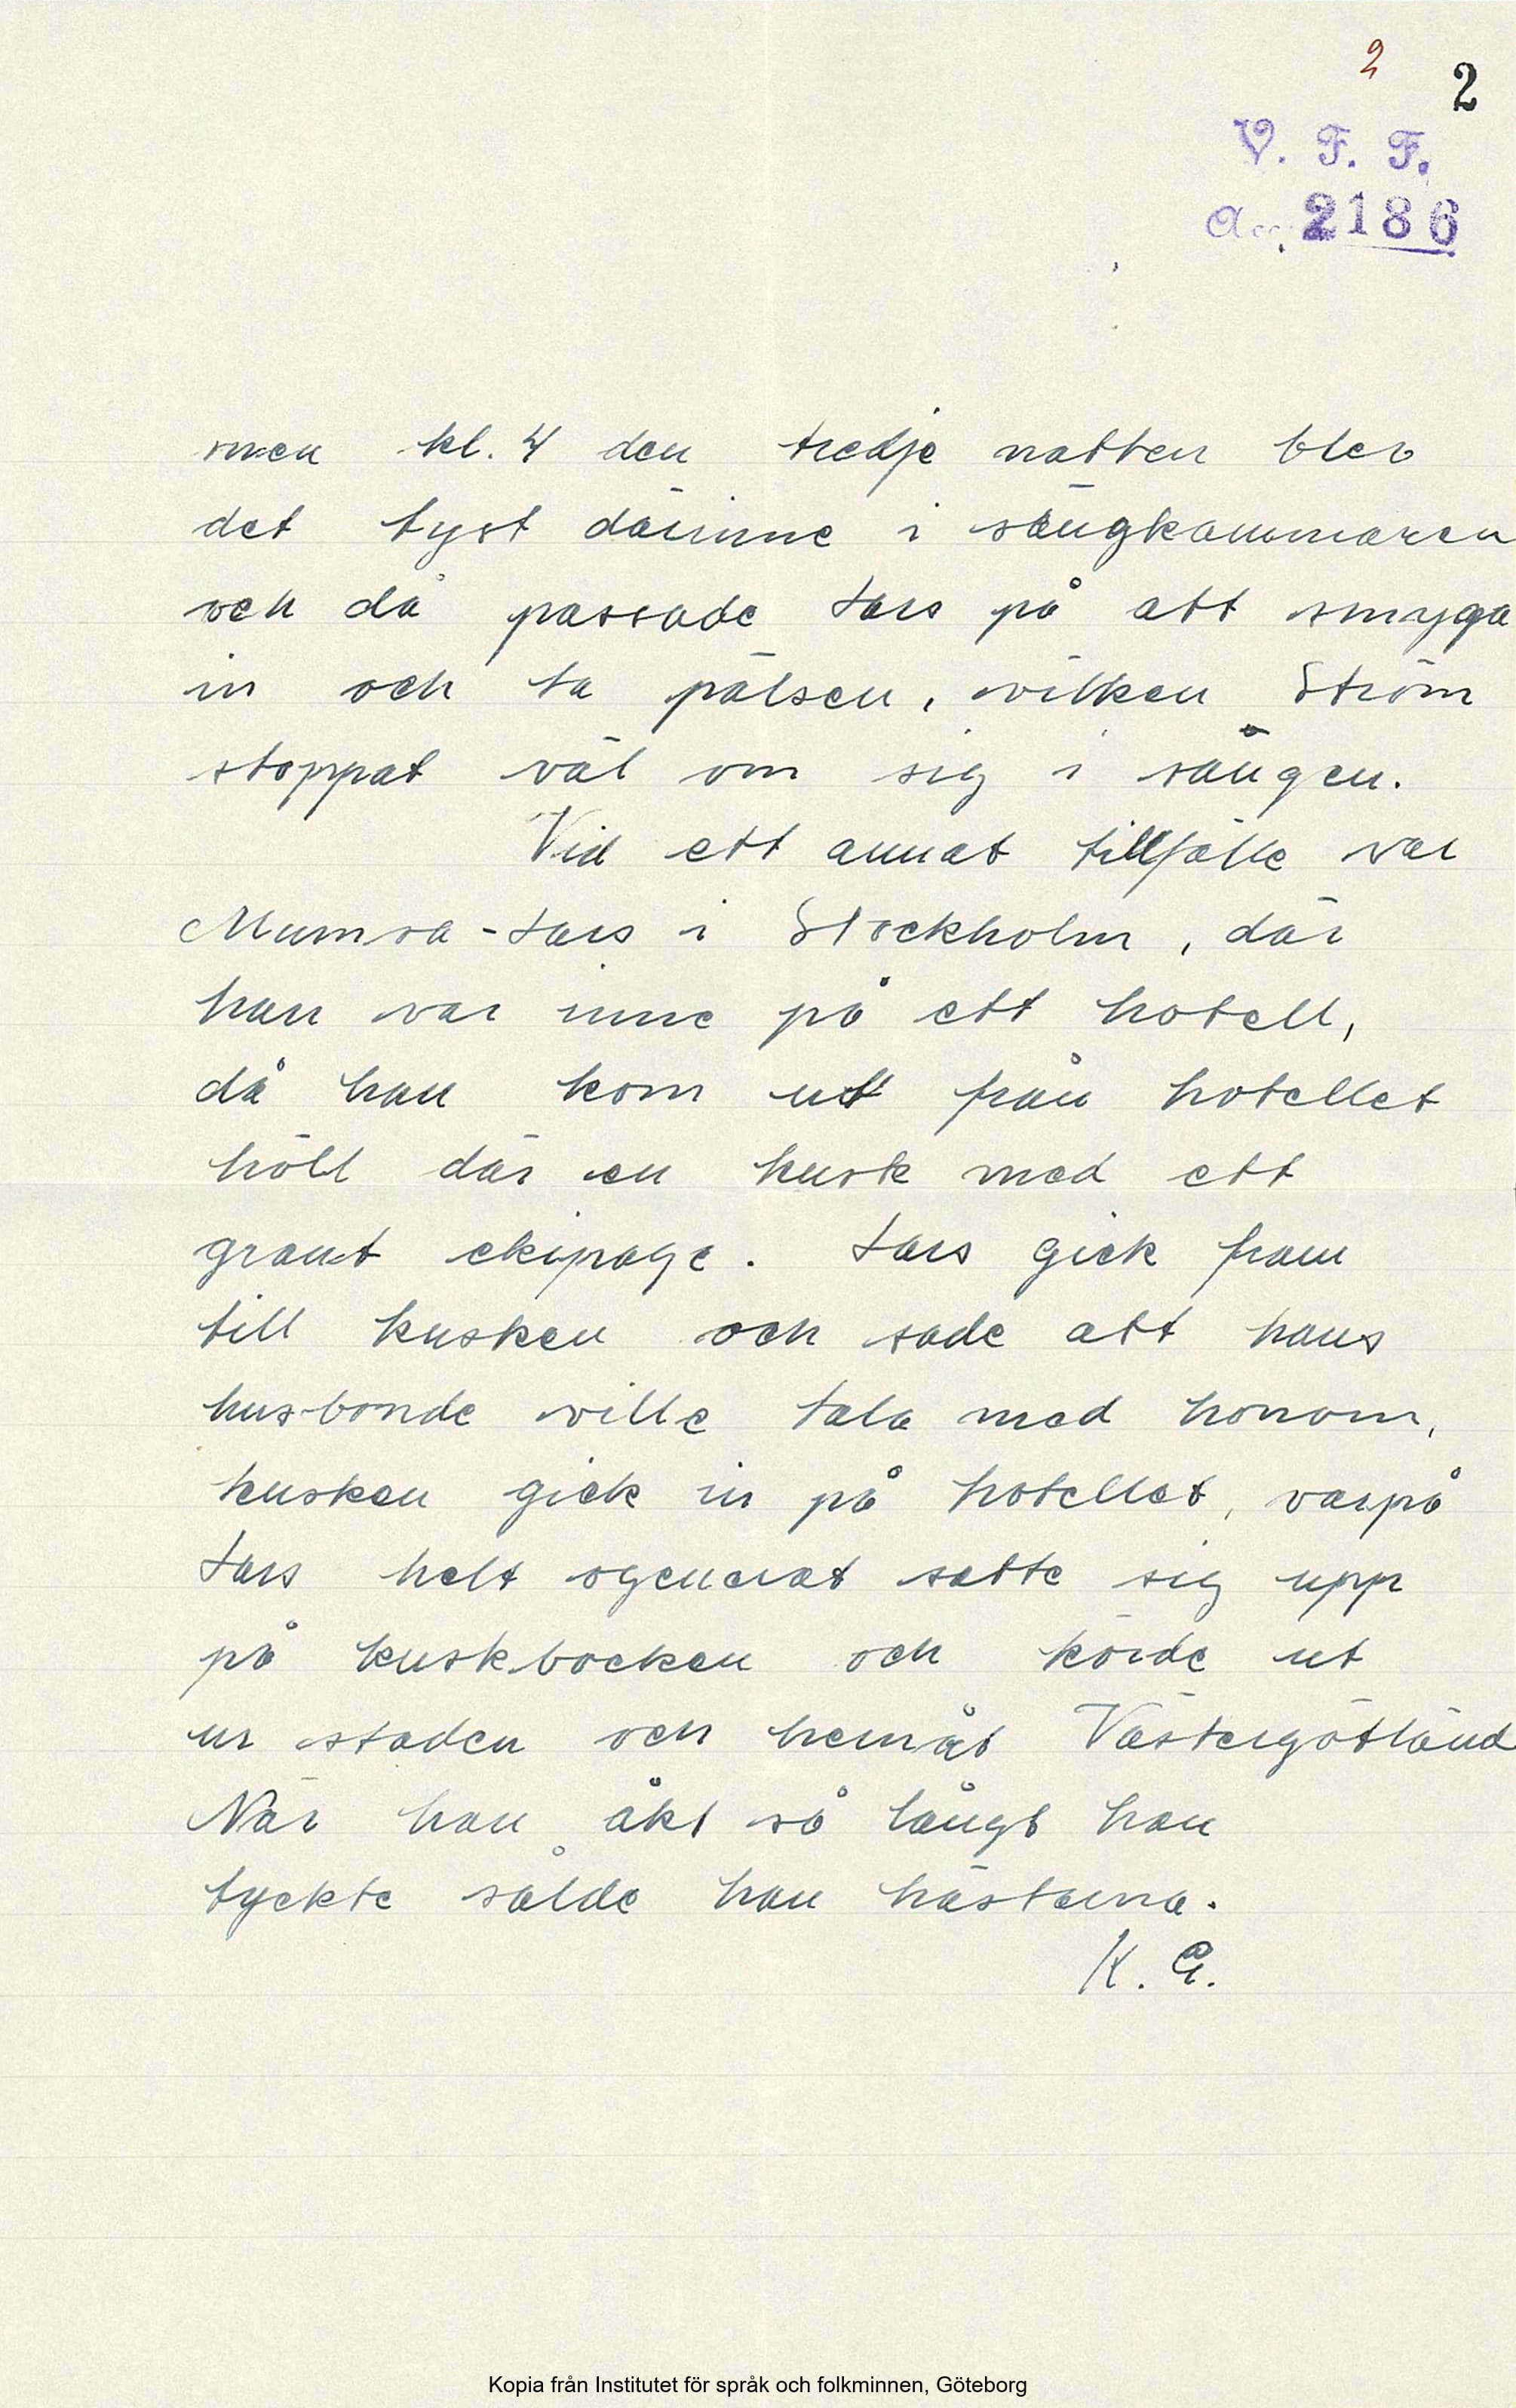 2
2
V. F. F.
Acc. 2186
men kl. 4 den tredje natten blev
det tyst därinne i sängkammaren
och då passade Lars på att smyga
in och ta pälsen, vilken Ström
stoppat väl om sig i sängen.
Vid ett annat tillfälle var
Mumsa-Lars i Stockholm, där
han var inne på ett hotell,
då han kom ut från hotellet
höll där en kusk med ett
grant ekipage. Lars gick fram
till kusken och sade att hans
husbonde ville tala med honom,
kusken gick in på hotellet, varpå
Lars helt ogenerat satte sig upp
på kuskbocken och körde ut
ur staden och hemåt Västergötland
När han åkt så långt han
tyckte sålde han hästarna.
K. G.
Kopia från Institutet för språk och folkminnen, Göteborg